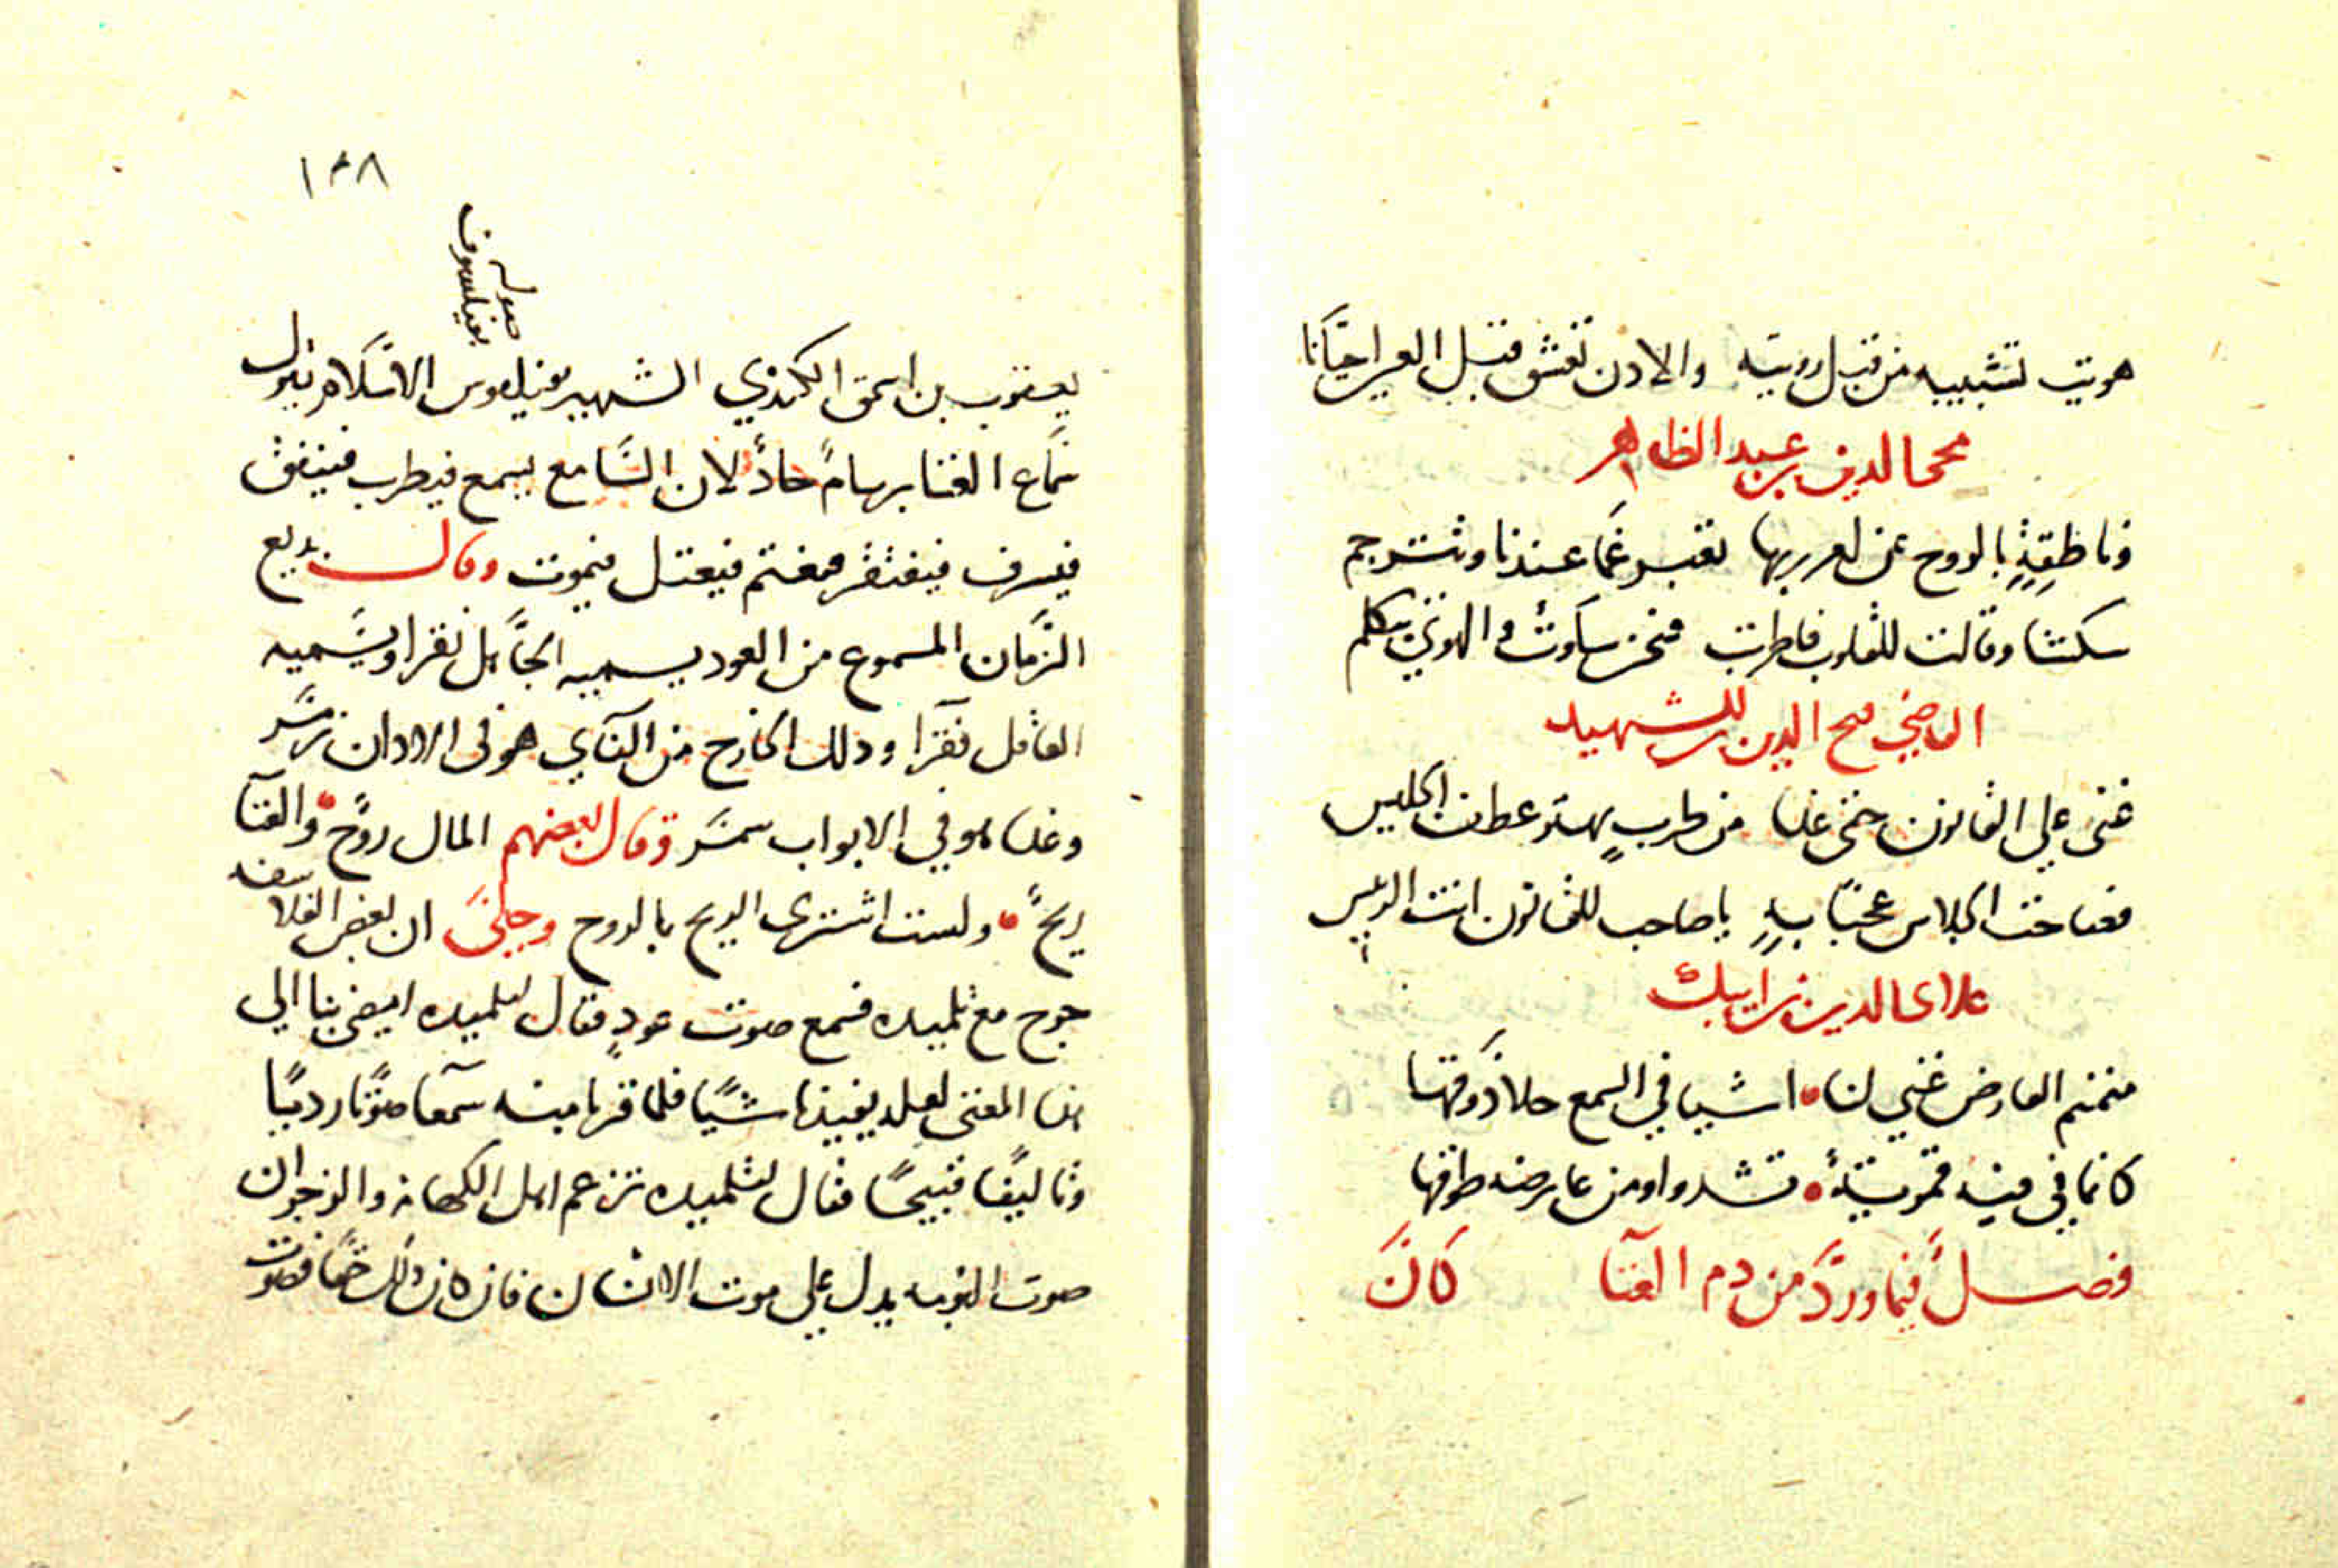 هويت تشبيبه من قبل رويته والاذن تعشق قبل العين احيانا
محيي الدين بن عبد الظاهر
وناطقة بالروح عن امر ربها تعبر عما عندنا وتترجم
سكتنا وقالت للقلوب فاطربت فنحن سكوت والهوي يتكلم
القاضي فتح الدين بن الشهيد
غني علي القانون حتى غدا من طرب يهتز عطف الجليس
فصاحت الجلاس عجبا به يا صاحب القانون انت الرييس
علاي الدين بن ايبك
منمنم العارض غني لنا اشيا في السمع حلا ذوقها
كانما في فيه قمرية تشدوا ومن عارضه طوقها
فصل فيما ورد من ذم الغنا كان
١٣٨
صوابه
بفيلسوف
يعقوب بن اسحق الكندي الشهير بفيلسوف الاسلام يقول
سماع الغنا برسام حاد لان السامع يسمع فيطرب فينفق
فيسرف فيفتقر فيغتم فيعتل فيموت وقال بديع
الزمان المسموع من العود يسميه الجاهل نقرا ويسميه
العاقل فقرا وذلك الخارج من الناي هو في الاذان زمر
وغدا هو في الابواب سمر وقال بعضهم المال روح والغنا
ريح ولست اشتري الريح بالروح وحكي ان بعض الفلاسفه
خرج مع تلميده فسمع صوت عود فقال لتلميده امض بنا الي
هذا المغني لعله يفيدنا شيا فلما قربا منه سمعا صوتا رديا
وتاليفا قبيحا فقال لتلميده تزعم اهل الكهانه والزجر ان
صوت البومه يدل علي موت الانسان فان كان ذلك حقا فصوت